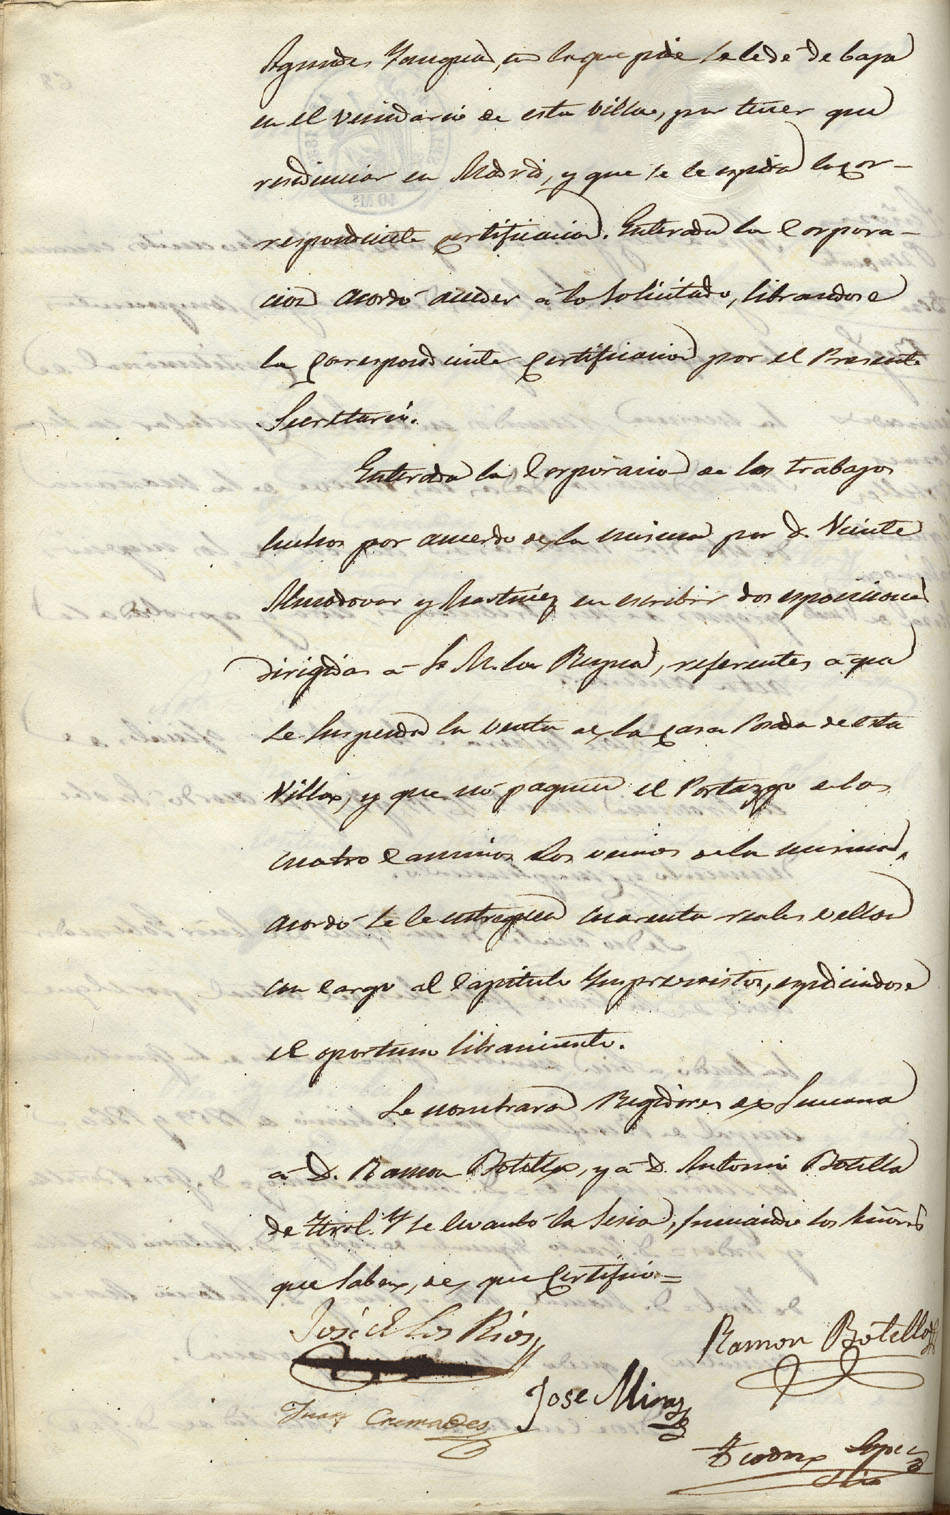 en la que pide se le dé de baja
en el vecindario de esta Villa, por tener que
residenciar en Madrid, y que se le espida la cor-
respondiente certificacion. Enterada la Corpora-
cion acordó acceder á lo solicitado, librandose
la correspondiente certificacion por el Presente
Secretario.
Enterada la Corporacion de los trabajos
hechos por acuerdo de la misma por D. Vicente
Almodovar y Martinez en escribir dos esposiciones
dirigidas á S. M. la Reyna, referentes á que
se suspenda la venta de la casa Posada de esta
Villa, y que no paguen el Portazgo de los
cuatro caminos los vecinos de la misma,
acordó se le entreguen cuarenta reales vellon
con cargo al Capitulo Ymprevistos, espidiendose
el oportuno libramiento.
Se nombraron Regidores de Semana
á D. Ramon Botella, y á D. Antonio Botella
de Yral. Y se levantó la Sesion, firmando los Señores
que saben, de que Certifico=
José de los Rios
Ramon Botella
Jose Miraz
Juan Cremades
Teodoro Lopez
Srio
10 Ms